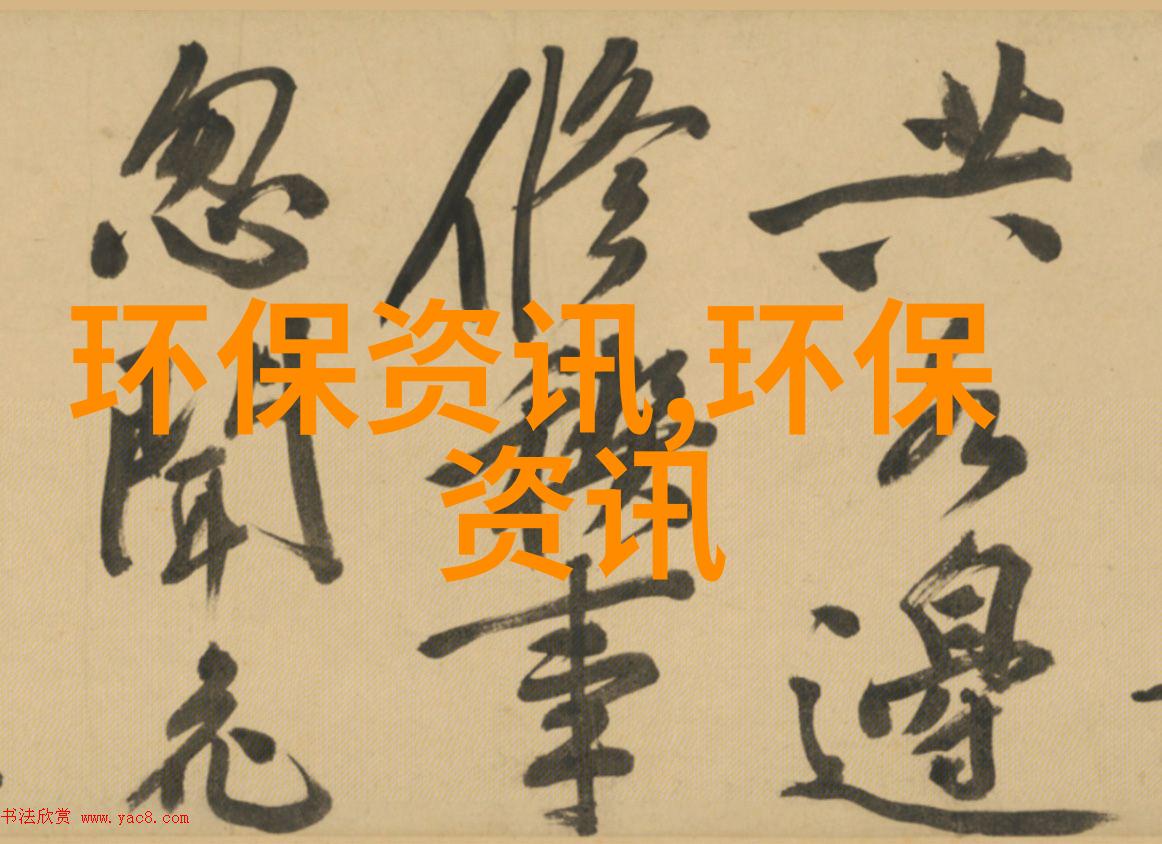 环保资讯,环保
资讯
共水邊
修禊事
忽聞
书法欣赏 www.yac8.com